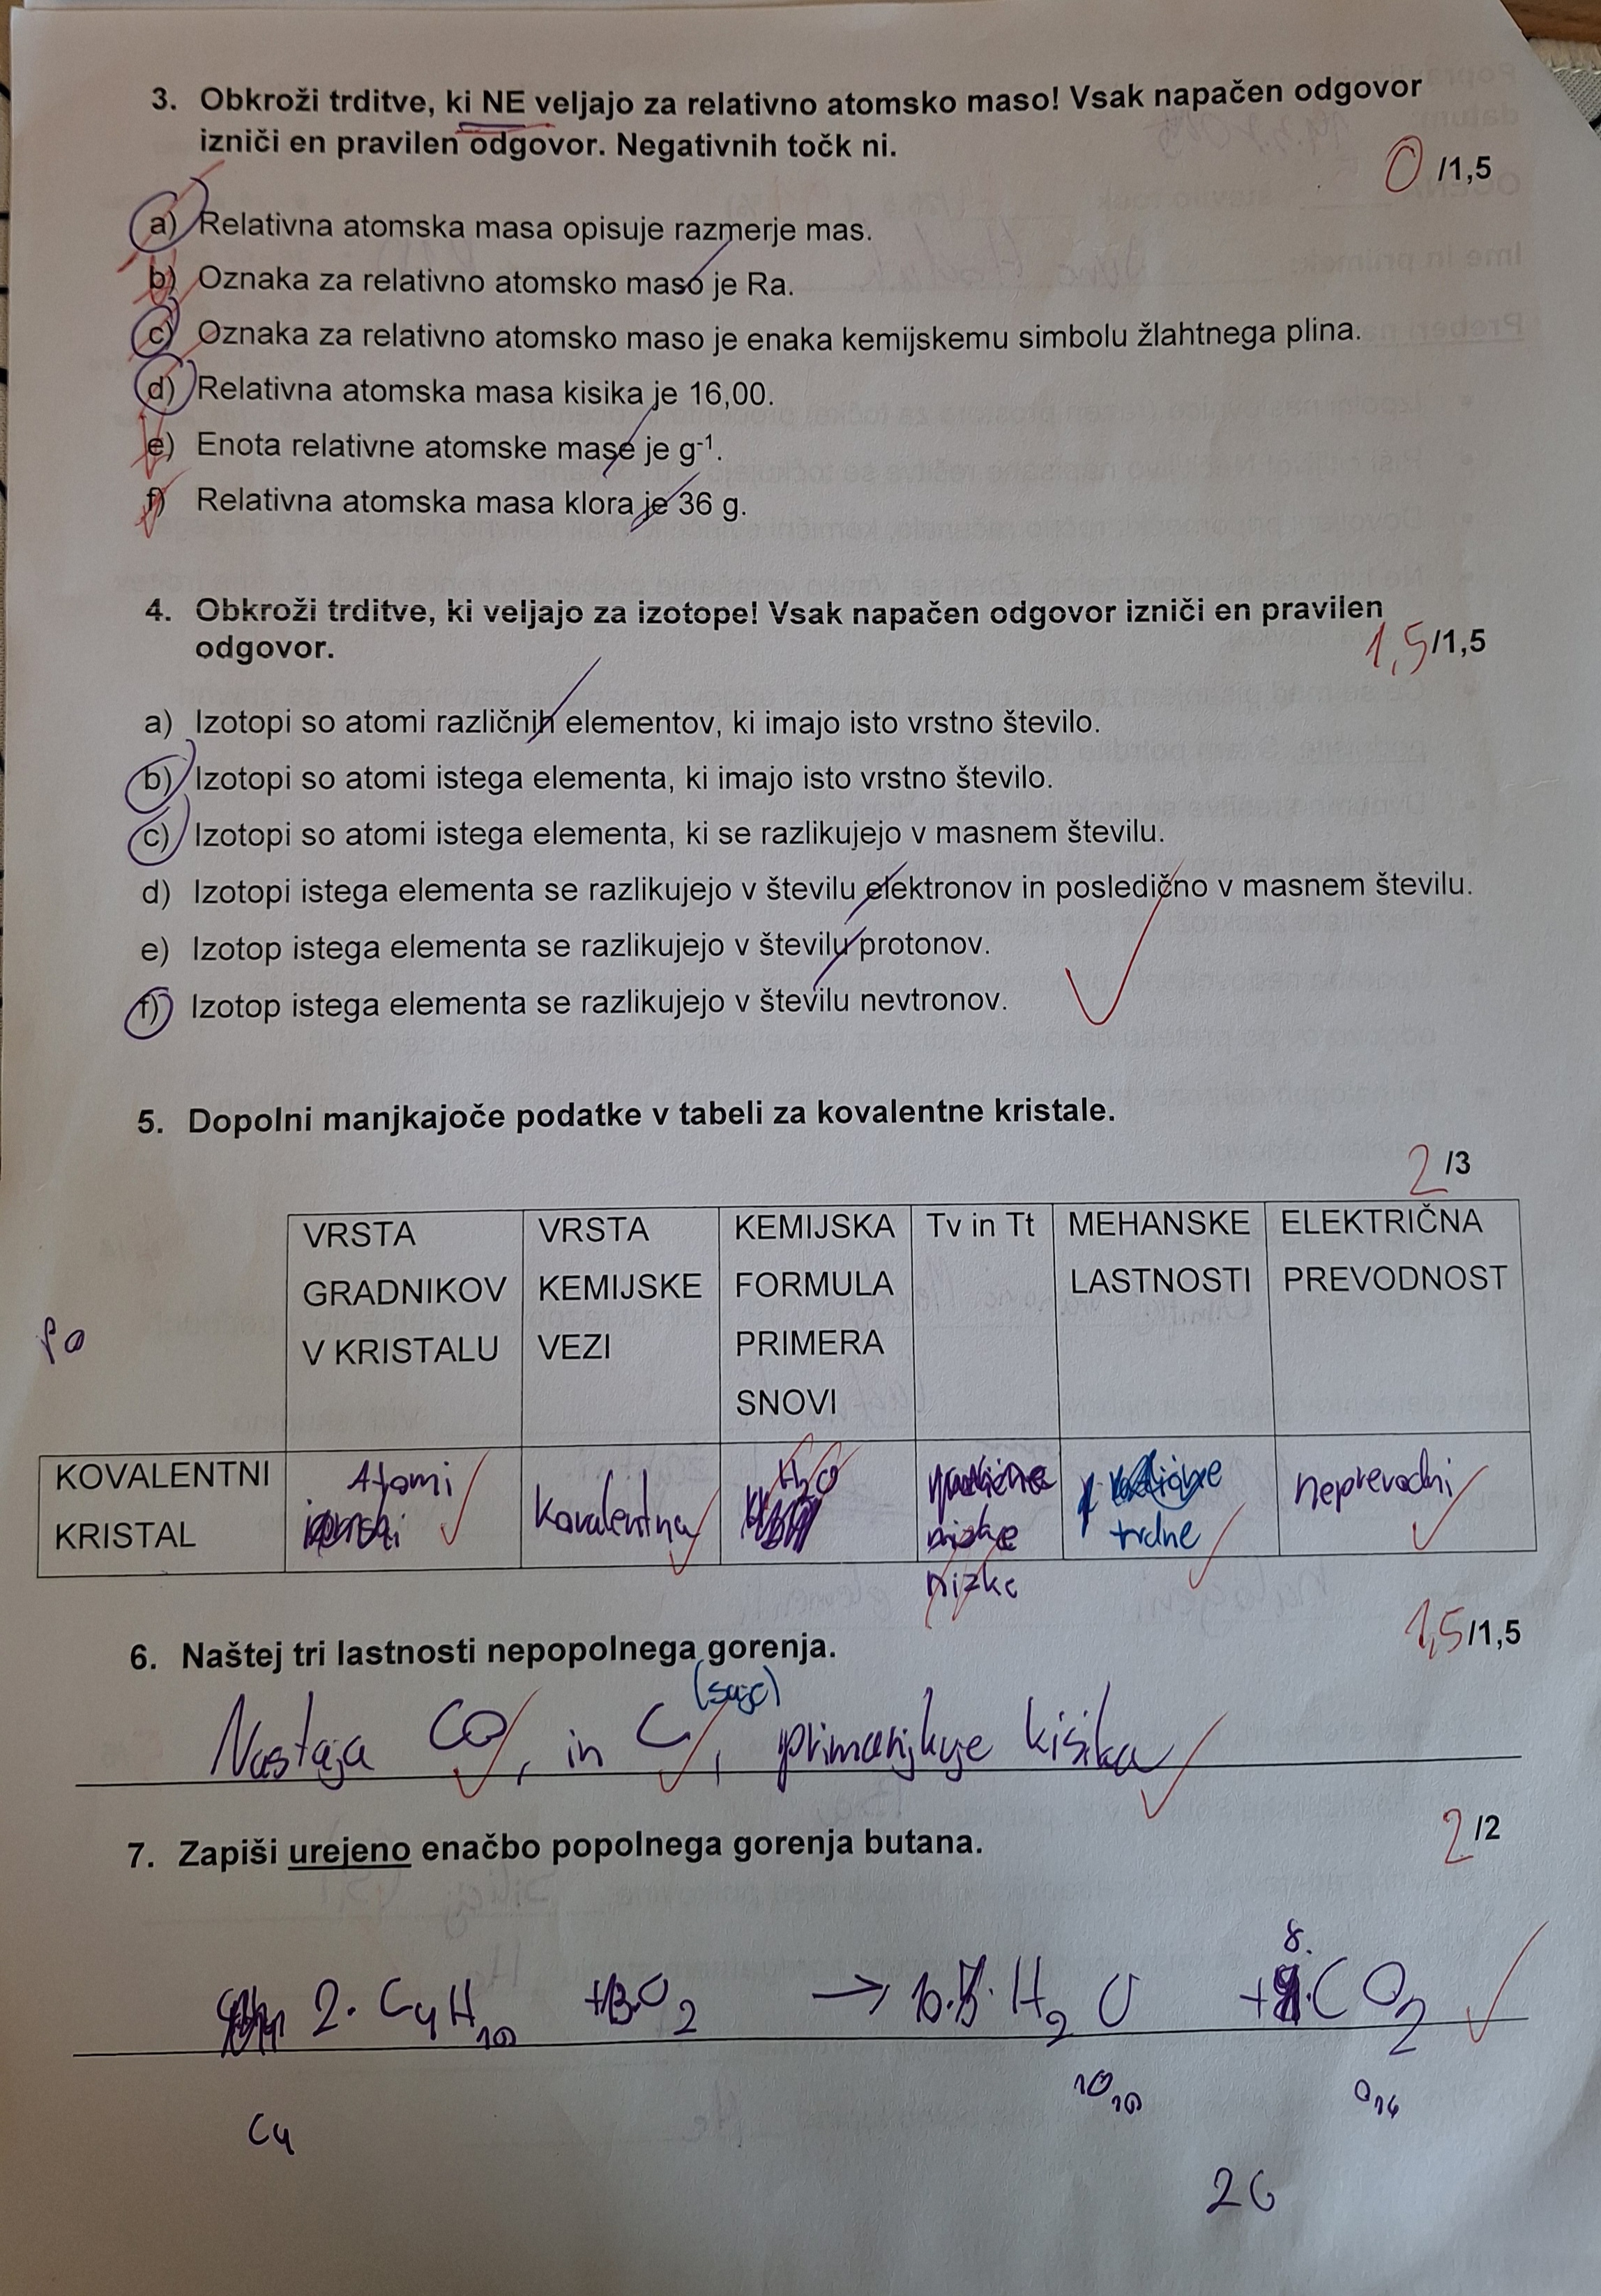 3. Obkroži trditve, ki NE veljajo za relativno atomsko maso! Vsak napačen odgovor
izniči en pravilen odgovor. Negativnih točk ni.
0 /1,5
a) Relativna atomska masa opisuje razmerje mas.
b) Oznaka za relativno atomsko maso je Ra.
c) Oznaka za relativno atomsko maso je enaka kemijskemu simbolu žlahtnega plina.
d) Relativna atomska masa kisika je 16,00.
e) Enota relativne atomske mase je g⁻¹.
f) Relativna atomska masa klora je 36 g.
4. Obkroži trditve, ki veljajo za izotope! Vsak napačen odgovor izniči en pravilen
odgovor.
1,5 /1,5
a) Izotopi so atomi različnih elementov, ki imajo isto vrstno število.
b) Izotopi so atomi istega elementa, ki imajo isto vrstno število.
c) Izotopi so atomi istega elementa, ki se razlikujejo v masnem številu.
d) Izotopi istega elementa se razlikujejo v številu elektronov in posledično v masnem številu.
e) Izotop istega elementa se razlikujejo v številu protonov.
f) Izotop istega elementa se razlikujejo v številu nevtronov.
5. Dopolni manjkajoče podatke v tabeli za kovalentne kristale.
2 /3
VRSTA GRADNIKOV V KRISTALU
VRSTA KEMIJSKE VEZI
KEMIJSKA FORMULA PRIMERA SNOVI
Tv in Tt
MEHANSKE LASTNOSTI
ELEKTRIČNA PREVODNOST
KOVALENTNI KRISTAL
Atomi
kovalentna
H₂O
nizke
trdne
neprevodni
6. Naštej tri lastnosti nepopolnega gorenja.
1,5 /1,5
Nastaja CO, in C (saje), primanjkuje kisika
7. Zapiši urejeno enačbo popolnega gorenja butana.
2 /2
2. C₄H₁₀ +13.O₂ → 10. H₂O + 8. CO₂
C₄
26